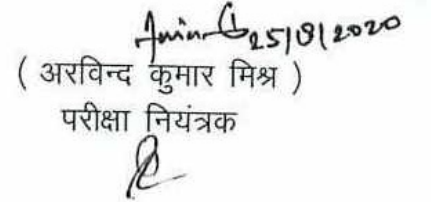 25/8/2020
( अरविन्द कुमार मिश्र )
परीक्षा नियंत्रक